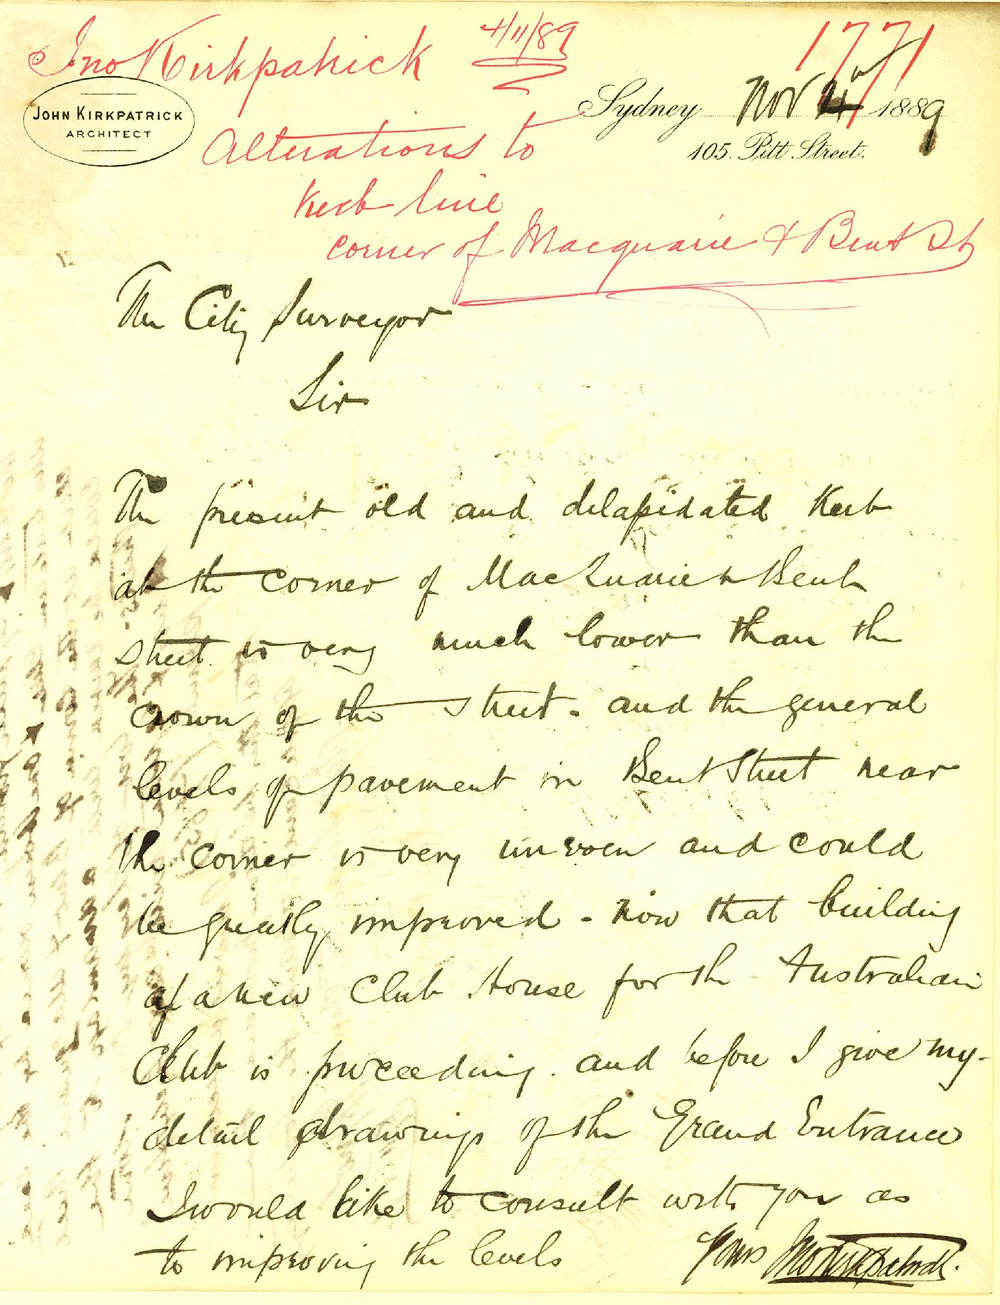 Jno Kirkpatrick 4/11/89 1771
JOHN KIRKPATRICK
ARCHITECT
Sydney Nov 4th 1889
105. Pitt Street.
Alterations to
Kerb line
corner of Macquarie & Bent St
The City Surveyor
Sir
The present old and delapidated Kerb
at the corner of MacQuarie & Bent
street is very much lower than the
crown of the street. and the general
levels of pavement in Bent Street near
the corner is very uneven and could
be greatly improved - now that building
of a new Club House for the Australian
Club is proceeding. and before I give my
detail drawings of the Grand Entrance
I would like to consult with you as
to improving the levels Yours Jno Kirkpatrick.